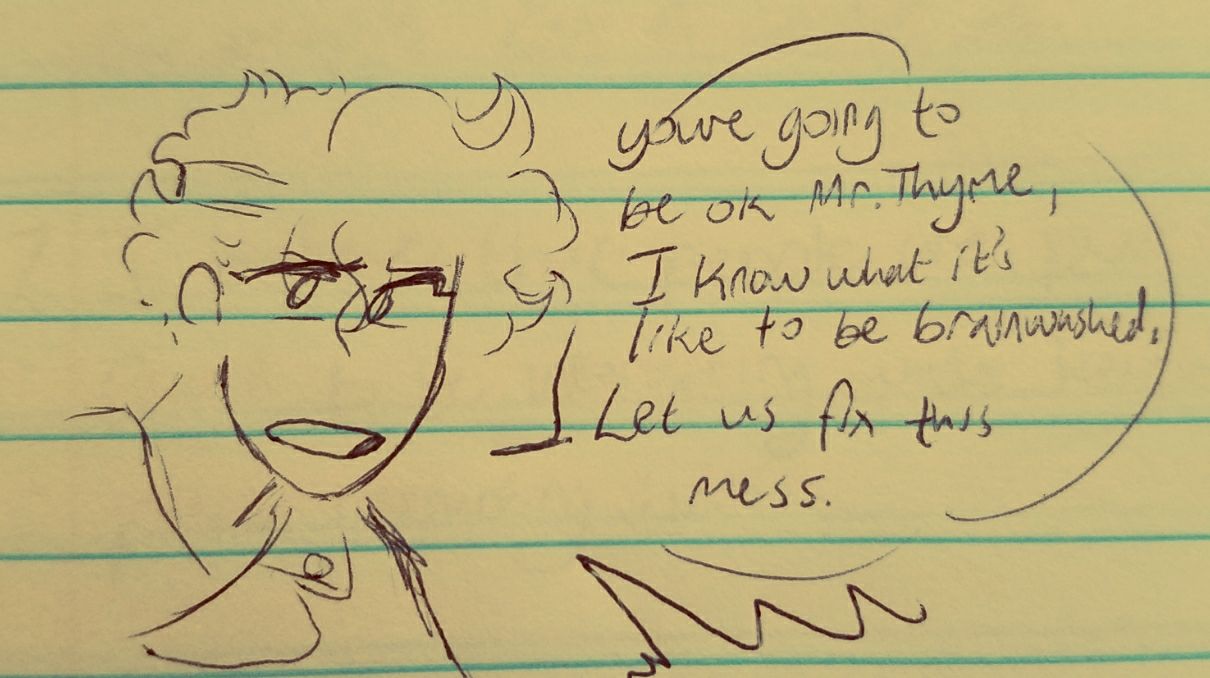 youre going to
be ok Mr. Thyme,
I know what it's
like to be brainwashed.
Let us fix this
mess.